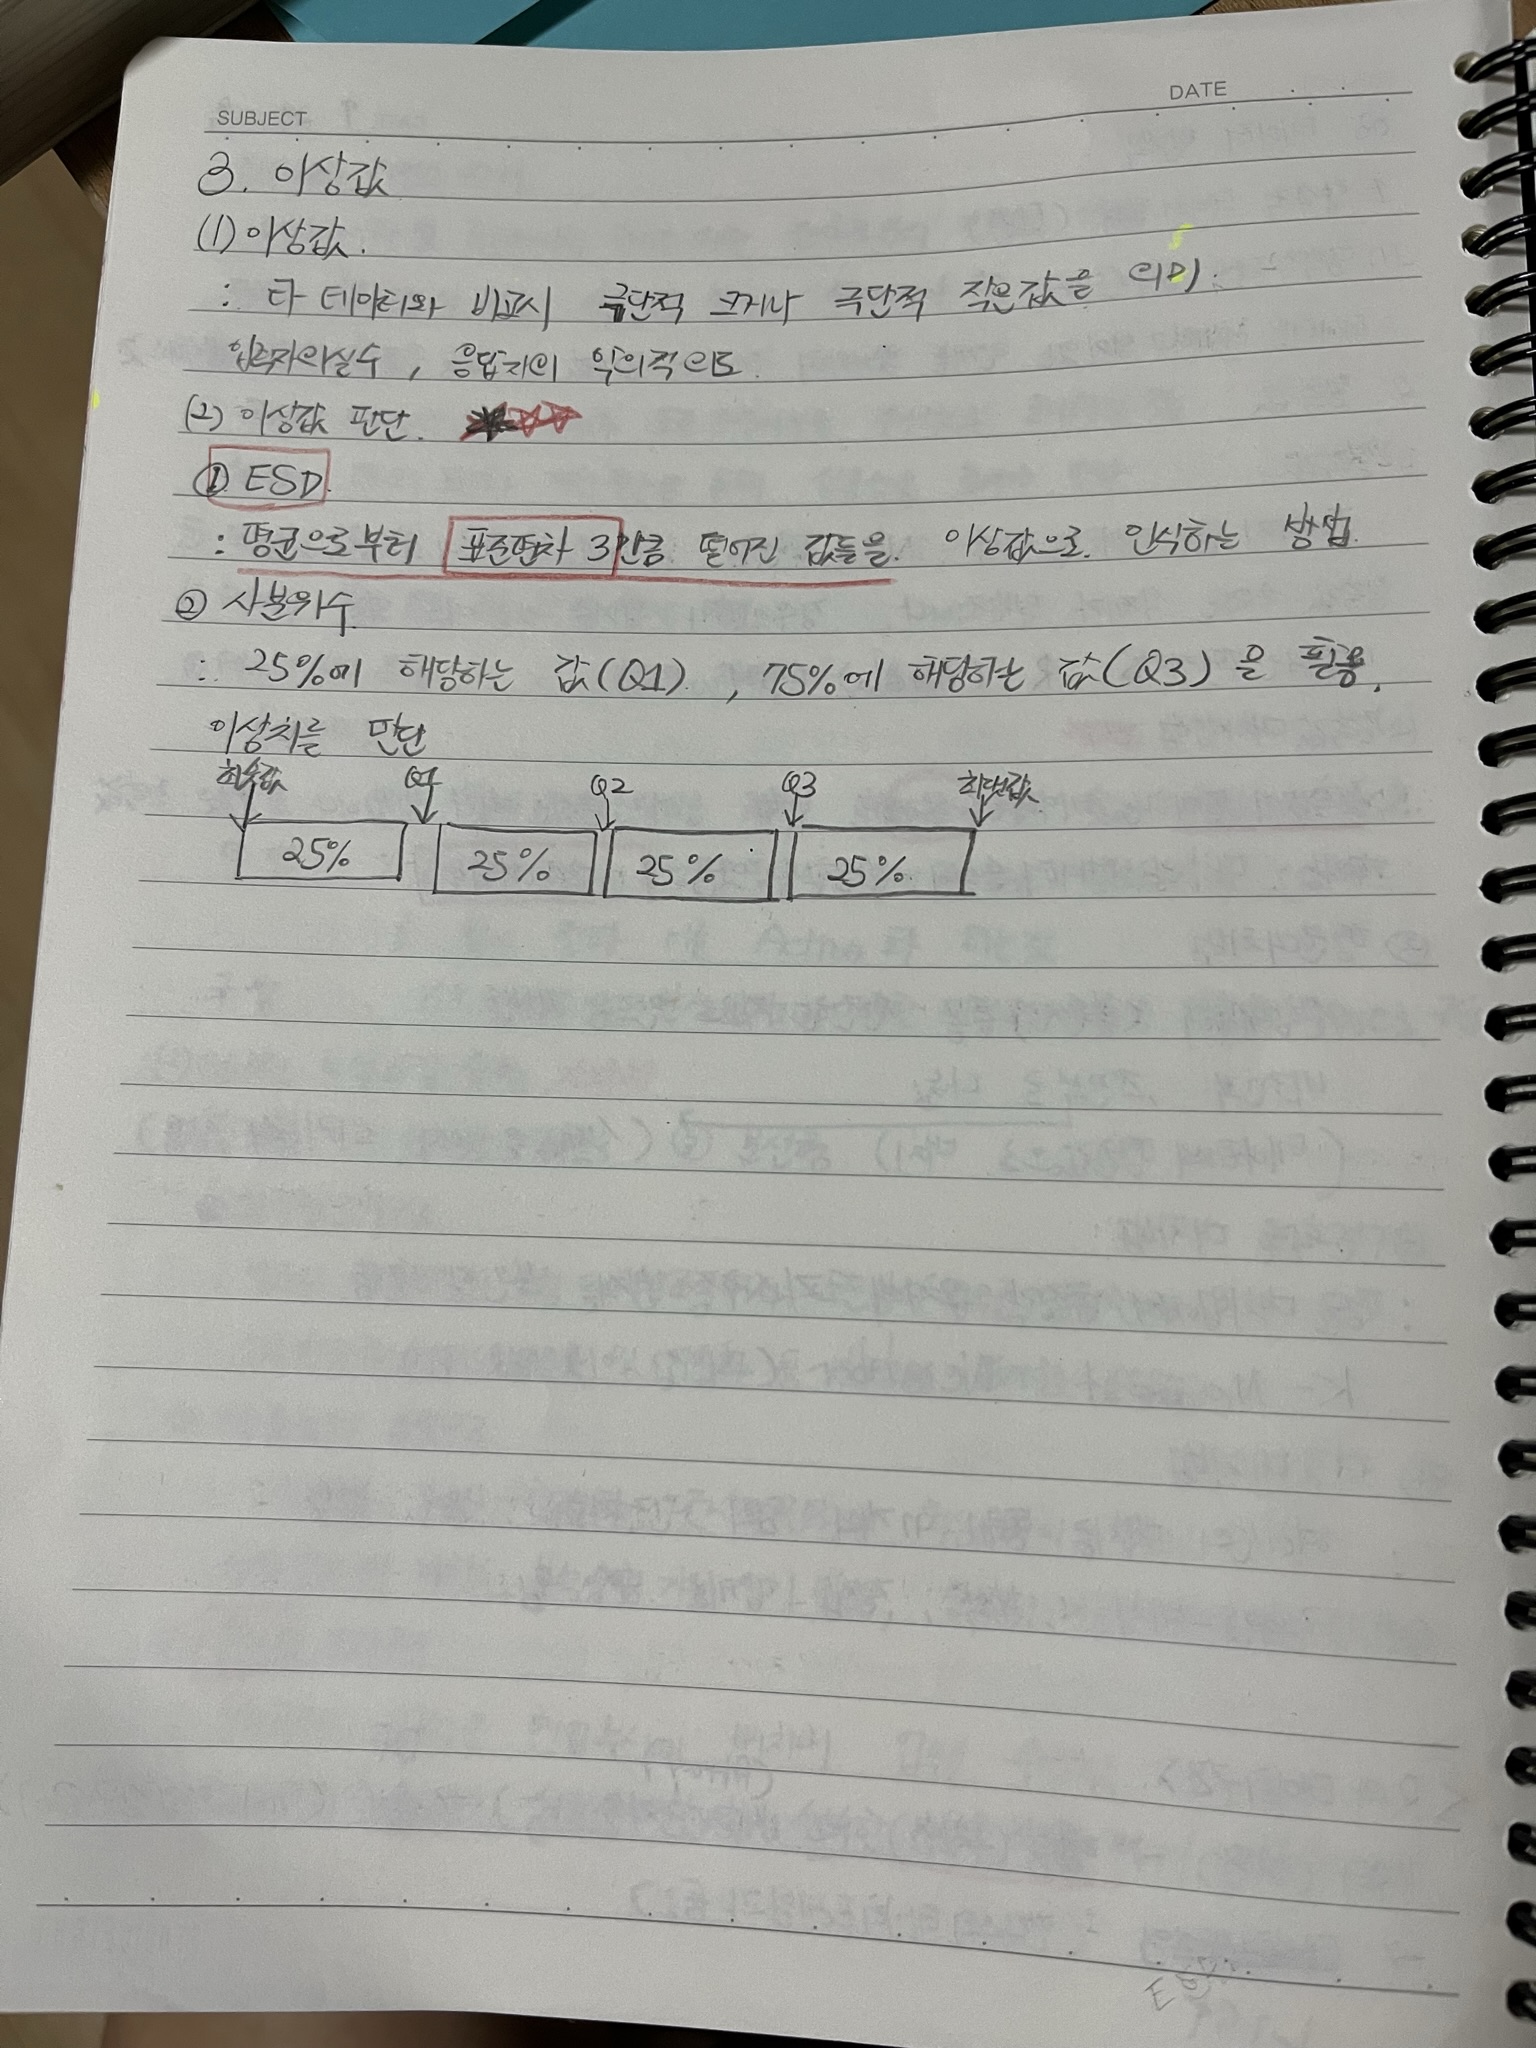 SUBJECT
DATE
3. 이상값
(1) 이상값.
: 타 데이터와 비교시 극단적 크거나 극단적 작은값을 의미.
입력자의실수, 응답자의 악의적의도.
(2) 이상값 판단.
① ESD.
: 평균으로부터 표준편차 3만큼 떨어진 값들을. 이상값으로. 인식하는 방법.
② 사분위수
: 25%에 해당하는 값(Q1). , 75%에 해당하는 값(Q3)을 활용,
이상치를 판단
최솟값 Q1 Q2 Q3 최댓값
25% 25% 25% 25%.